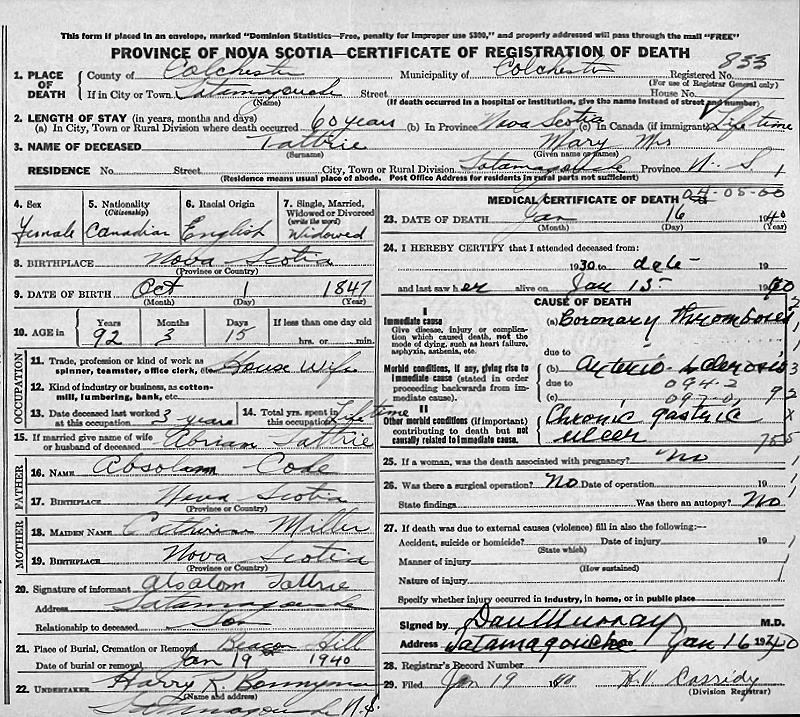 This form if placed in an envelope, marked "Dominion Statistics—Free, penalty for improper use $300," and properly addressed will pass through the mail "FREE"
PROVINCE OF NOVA SCOTIA—CERTIFICATE OF REGISTRATION OF DEATH
833
1. PLACE OF DEATH County of Colchester Municipality of Colchester Registered No.
(For use of Registrar General only)
If in City or Town Tatamagouche Street House No.
(Name) (If death occurred in a hospital or institution, give the name instead of street and number)
2. LENGTH OF STAY (in years, months and days)
(a) In City, Town or Rural Division where death occurred 60 years (b) In Province Nova Scotia (c) In Canada (if immigrant) Life time
3. NAME OF DECEASED Tattrie Mary Mrs
(Surname) (Given name or names)
RESIDENCE No. Street City, Town or Rural Division Tatamagouche Province N. S.
(Residence means usual place of abode. Post Office Address for residents in rural parts not sufficient)
4. Sex 5. Nationality (Citizenship) 6. Racial Origin 7. Single, Married, Widowed or Divorced (write the word)
Female Canadian English Widowed
8. BIRTHPLACE Nova Scotia
(Province or Country)
9. DATE OF BIRTH Oct 1 1847
(Month) (Day) (Year)
10. AGE in Years Months Days If less than one day old
92 3 15 hrs. or min.
OCCUPATION
11. Trade, profession or kind of work as spinner, teamster, office clerk, etc. House Wife
12. Kind of industry or business, as cotton-mill, lumbering, bank, etc.
13. Date deceased last worked at this occupation 3 years 14. Total yrs. spent in this occupation Life time
15. If married give name of wife or husband of deceased Adrian Tattrie
FATHER
16. NAME Absolam Code
17. BIRTHPLACE Nova Scotia
(Province or Country)
MOTHER
18. MAIDEN NAME Miller
19. BIRTHPLACE Nova Scotia
(Province or Country)
20. Signature of informant Absalom Tattrie
Address Tatamagouche
Relationship to deceased Son
21. Place of Burial, Cremation or Removal Beacon Hill
Date of burial or removal Jan 19 1940
22. UNDERTAKER Harry R. Bonnyman
(Name and address)
Tatamagouche N.S.
MEDICAL CERTIFICATE OF DEATH 04-05-00
23. DATE OF DEATH Jan 16 1940
(Month) (Day) (Year)
24. I HEREBY CERTIFY that I attended deceased from:
1930 to date 19
and last saw her alive on Jan 15 1940
CAUSE OF DEATH
I
Immediate cause
Give disease, injury or complication which caused death, not the mode of dying, such as heart failure, asphyxia, asthenia, etc.
(a) Coronary Thrombosis
due to
Morbid conditions, if any, giving rise to immediate cause (stated in order proceeding backwards from immediate cause).
(b) Arterio-sclerosis
due to 094-2
(c) 097-0
II
Other morbid conditions (if important) contributing to death but not causally related to immediate cause.
Chronic gastric ulcer
25. If a woman, was the death associated with pregnancy? no
26. Was there a surgical operation? No Date of operation 19
State findings Was there an autopsy? No
27. If death was due to external causes (violence) fill in also the following:—
Accident, suicide or homicide? Date of injury 19
(State which)
Manner of injury
(How sustained)
Nature of injury
Specify whether injury occurred in industry, in home, or in public place
Signed by Dan Murray M.D.
Address Tatamagouche Jan 16 1940
28. Registrar's Record Number
29. Filed Jan 19 40 H.V. Cassidy
(Division Registrar)